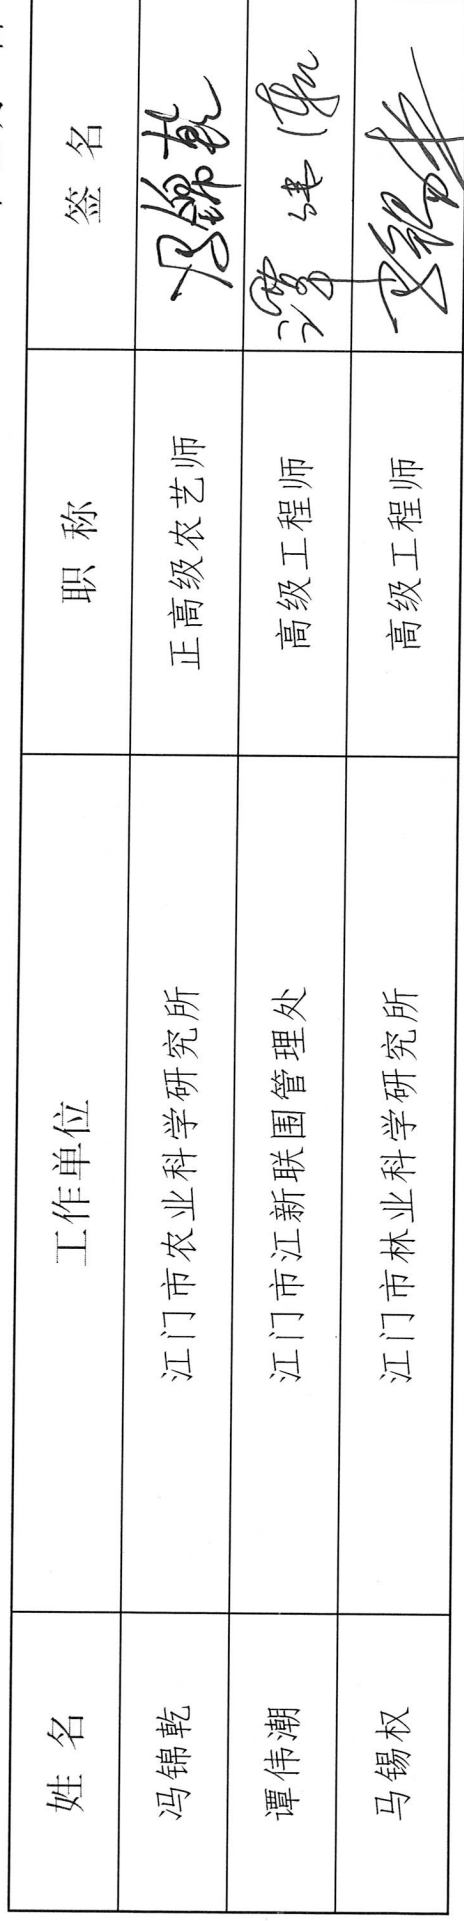 姓名 工作单位 职称 签名
冯锦乾 江门市农业科学研究所 正高级农艺师 冯锦乾
谭伟潮 江门市江新联围管理处 高级工程师 谭伟潮
马锡权 江门市林业科学研究所 高级工程师 马锡权